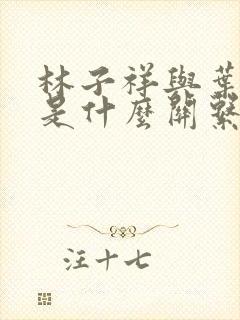 林子祥與葉
是什麼關繫
汪十七